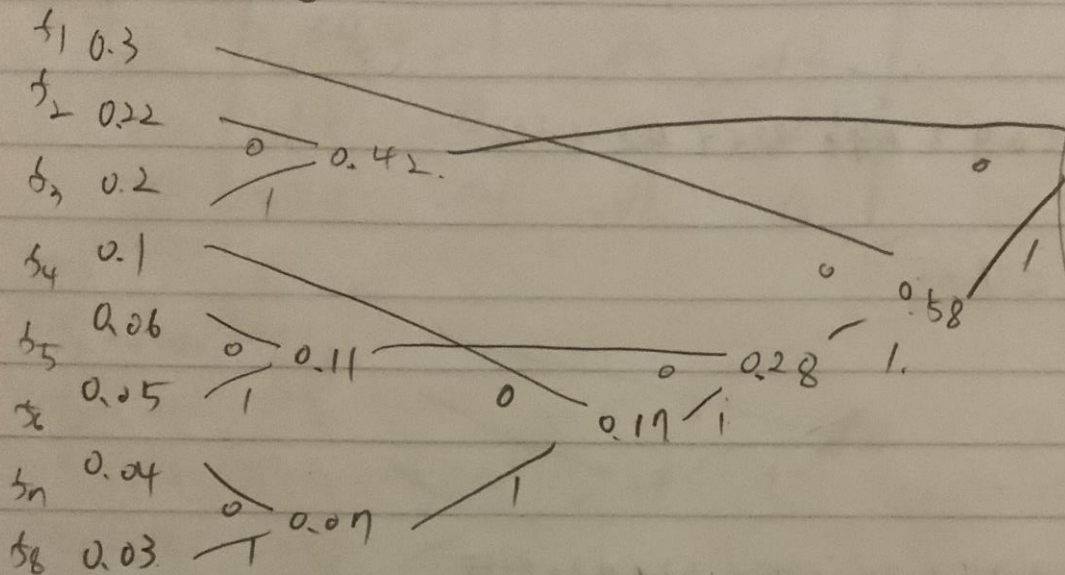 s1 0.3
s2 0.22
0 0.42.
0
s3 0.2
1
s4 0.1
0
1
0.58
s5 0.06
0 0.11
0
0.28
1.
s6 0.05
1
0
0.17
1
s7 0.04
0 0.07
1
s8 0.03
1